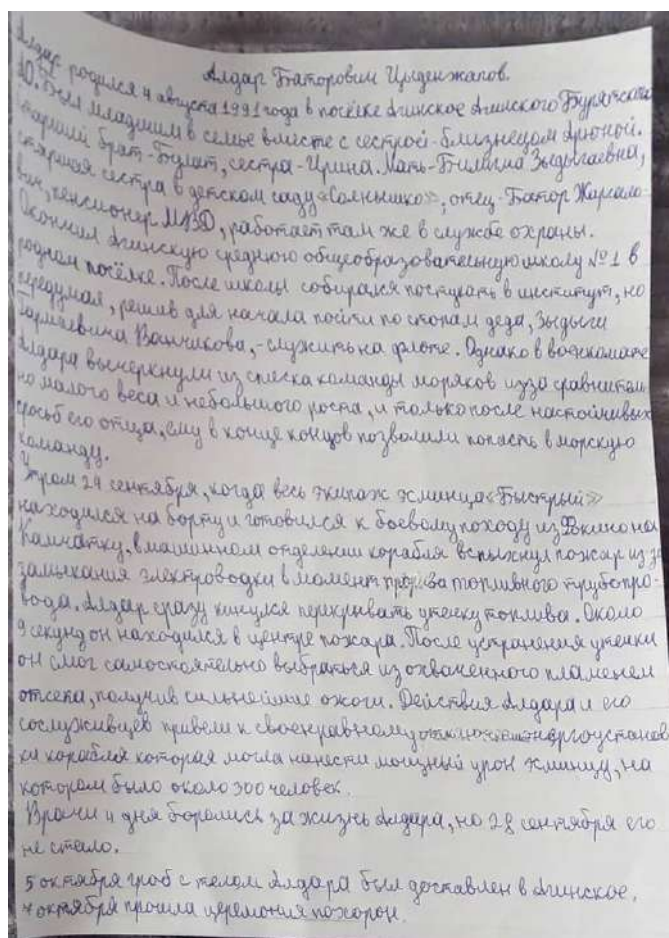 Алдар Баторович Цыденжапов.
Алдар родился 4 августа 1991 года в посёлке Агинское Агинского Бурятского
АО. Был младшим в семье вместе с сестрой-близнецом Арюной.
Старший брат-Булат, сестра-Ирина. Мать-Билигма Зыдыгаевна,
старшая сестра в детском саду «Солнышко», отец-Батор Жаргало-
вич, пенсионер МВД, работает там же в службе охраны.
Окончил Агинскую среднюю общеобразовательную школу №1 в
родном посёлке. После школы собирался поступать в институт, но
передумал, решив для начала пойти по стопам деда, Зыдыги
Гармаевича Ванчикова, - служить на флоте. Однако в военкомате
Алдара вычеркнули из списка команды моряков изза сравнитель
но малого веса и небольшого роста, и только после настойчивых
просьб его отца, ему в конце концов позволили попасть в морскую
команду.
Утром 24 сентября, когда весь экипаж эсминца «Быстрый»
находился на борту и готовился к боевому походу из Фокино на
Камчатку, в машинном отделении корабля вспыхнул пожар из за
замыкания электроводки в момент прорыва топливного трубопро-
вода. Алдар сразу кинулся перекрывать утечку топлива. Около
9 секунд он находился в центре пожара. После устранения утечки
он смог самостоятельно выбраться из охваченного пламенем
отсека, получив сильнейшие ожоги. Действия Алдара и его
сослуживцев привели к своенравному энергоустанов
ки корабля которая могла нанести мощный урон эсминцу, на
котором было около 300 человек.
Врачи 4 дня боролись за жизнь Алдара, но 28 сентября его
не стало.
5 октября гроб с телом Алдара был доставлен в Агинское,
7 октября прошла церемония похорон.